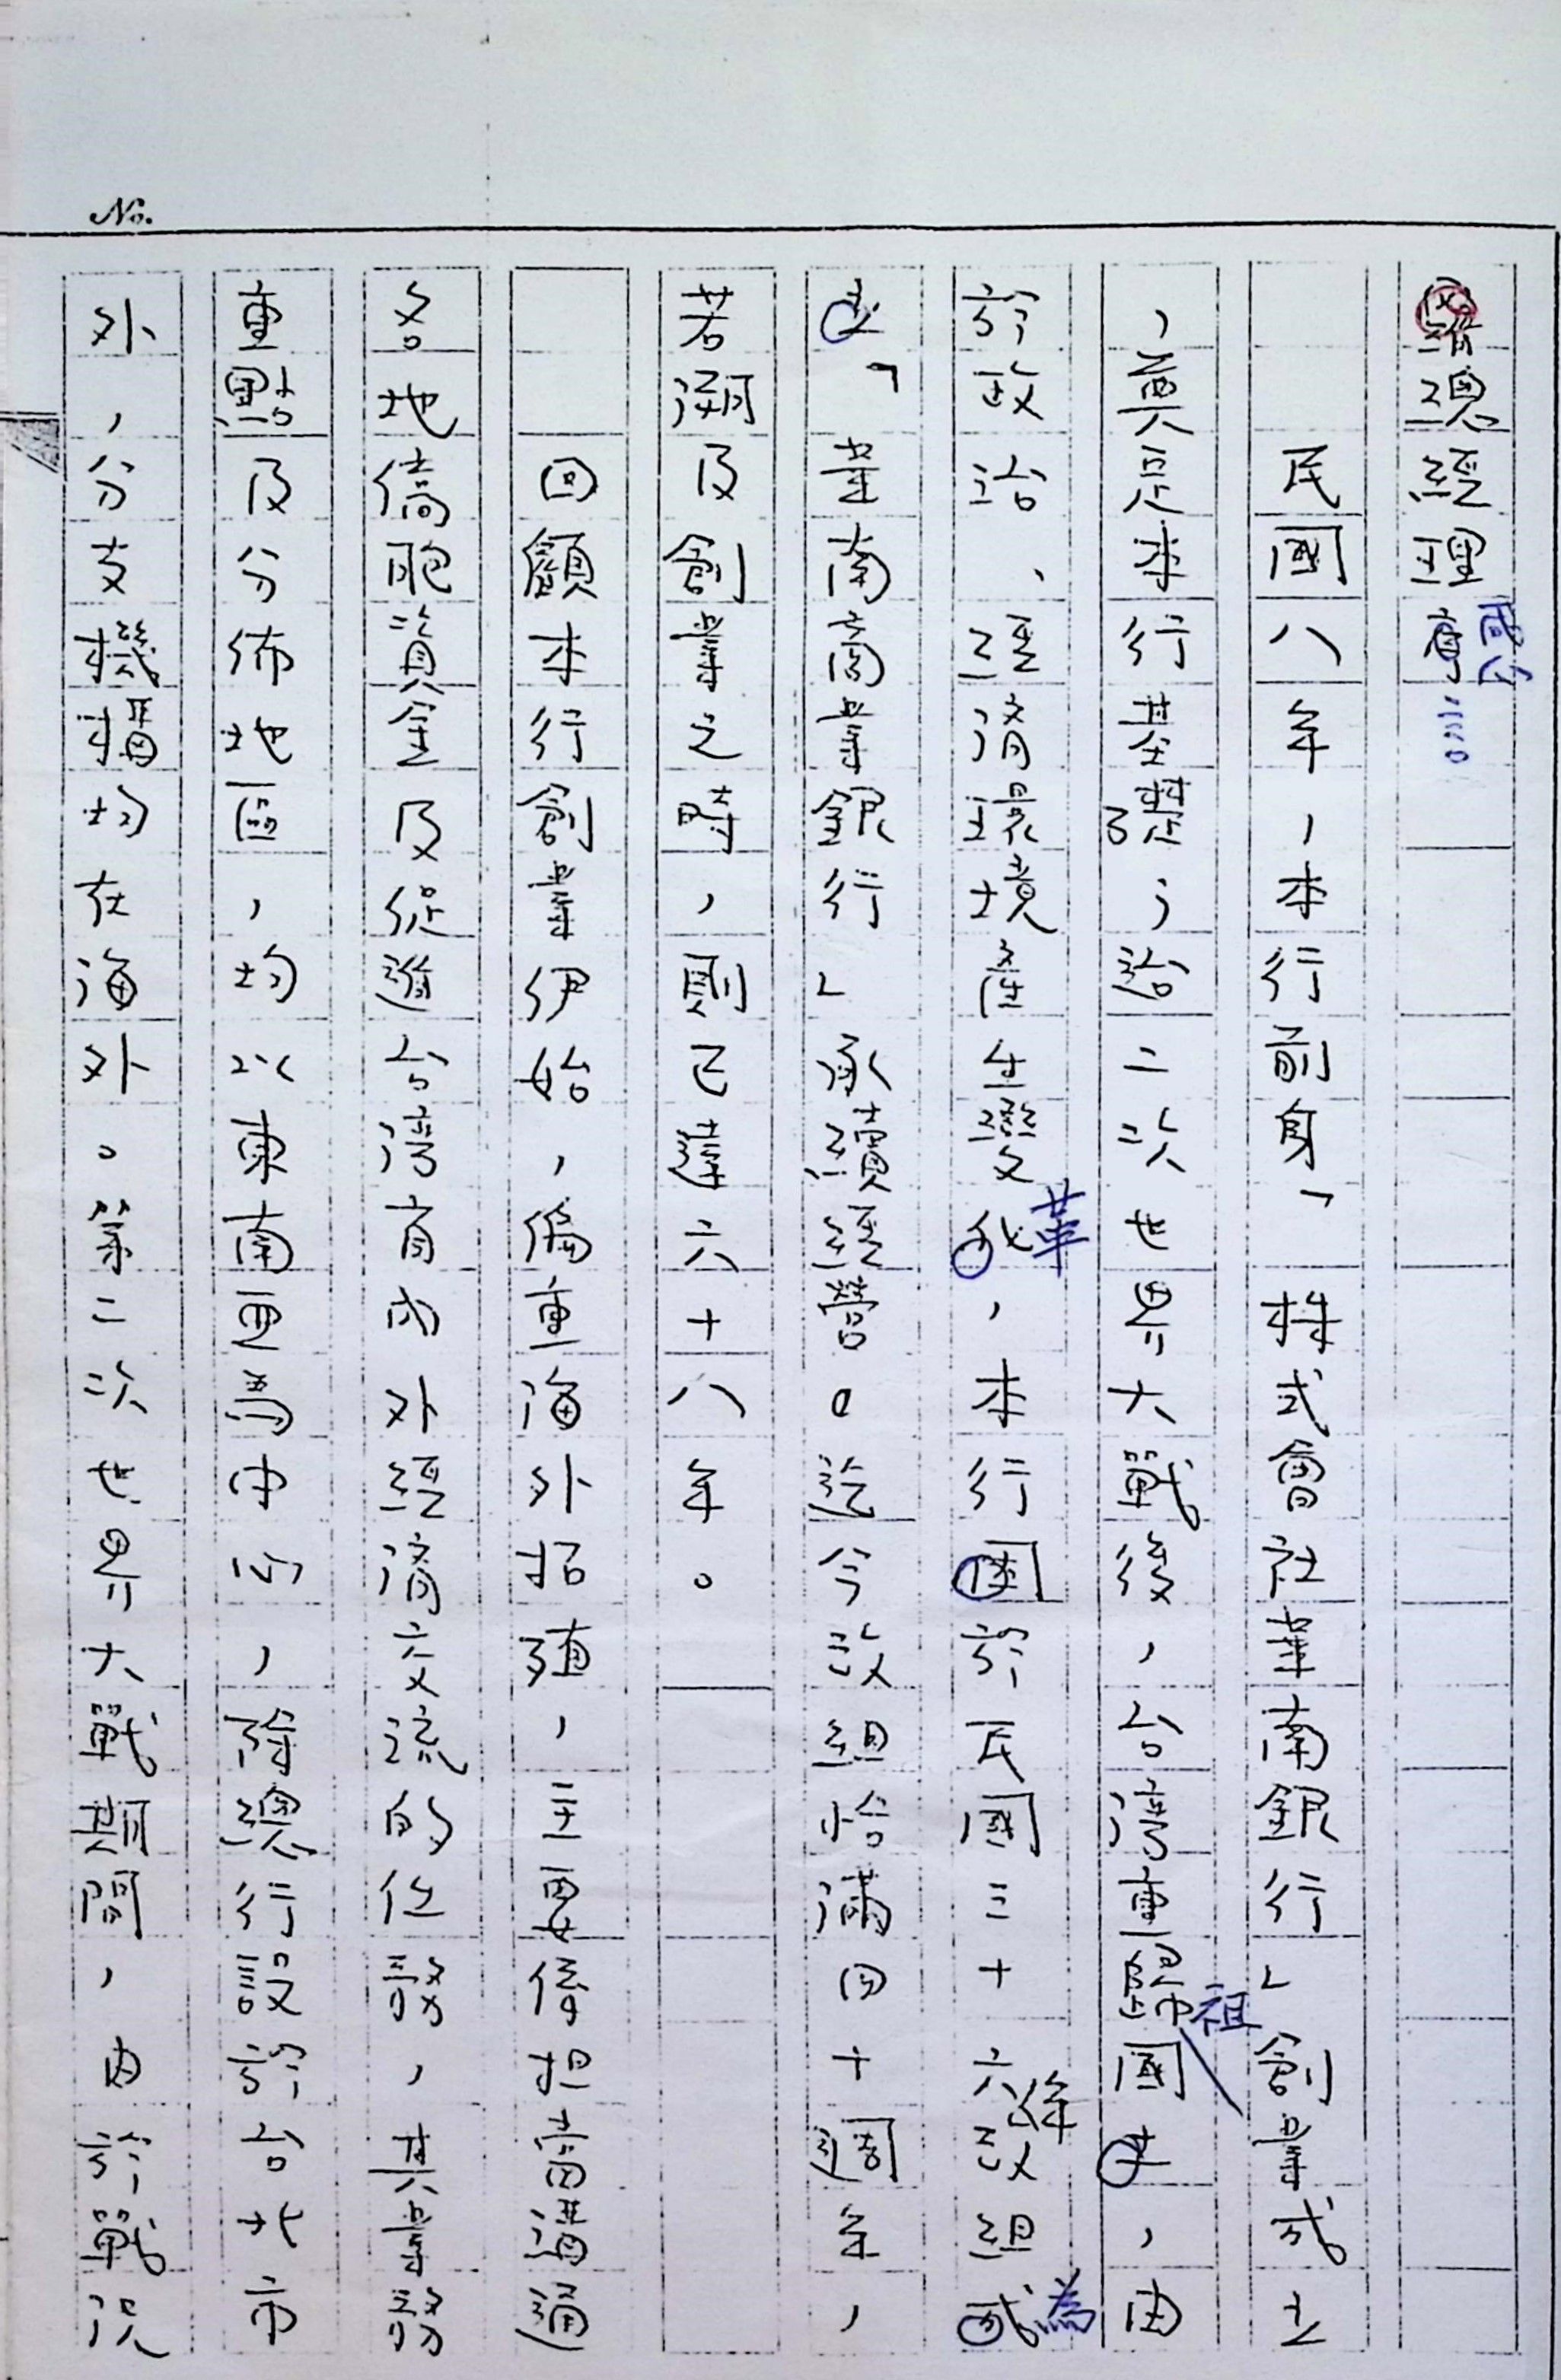 總經理序
民國八年,本行前身「株式會社華南銀行」創業成立
,奠定本行基礎;迨二次世界大戰後,台灣重歸祖國,由
於政治、經濟環境產生變革,本行於民國三十六年改組為
「華南商業銀行」承續經營。迄今改組恰滿四十週年,
若溯及創業之時,則已達六十八年。
回顧本行創業伊始,偏重海外拓殖,主要係担當溝通
各地僑胞資金及促進台灣省對外經濟交流的任務,其業務
重點及分佈地區,均以東南亞為中心,除總行設於台北市
外,分支機構均在海外。第二次世界大戰期間,由於戰況
No.